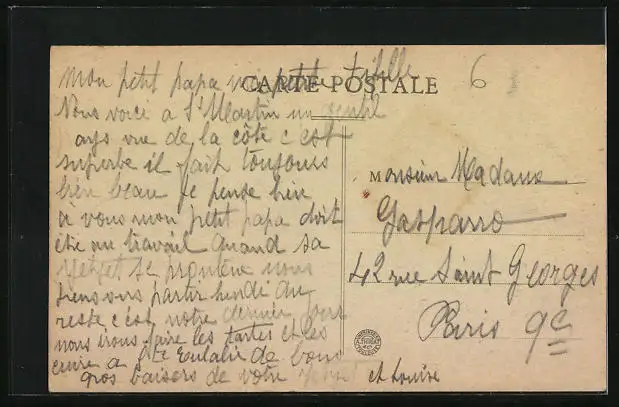 Mon petit papa ma petite
CARTE POSTALE
6
Nous voici a St Martin un gentil
ays vue de la côte c est
superbe il fait toujours
bien beau je pense bien
à vous mon petit papa doit
être au travail quand sa
se promène nous
pensons partir lundi du
reste c'est notre dernier jour
nous irons faire les tartes et les
cuire a Ste Eulalie de bons
gros baisers de votre et Louise
Monsieur Madame
Gasparro
42 rue Saint Georges
Paris 9e